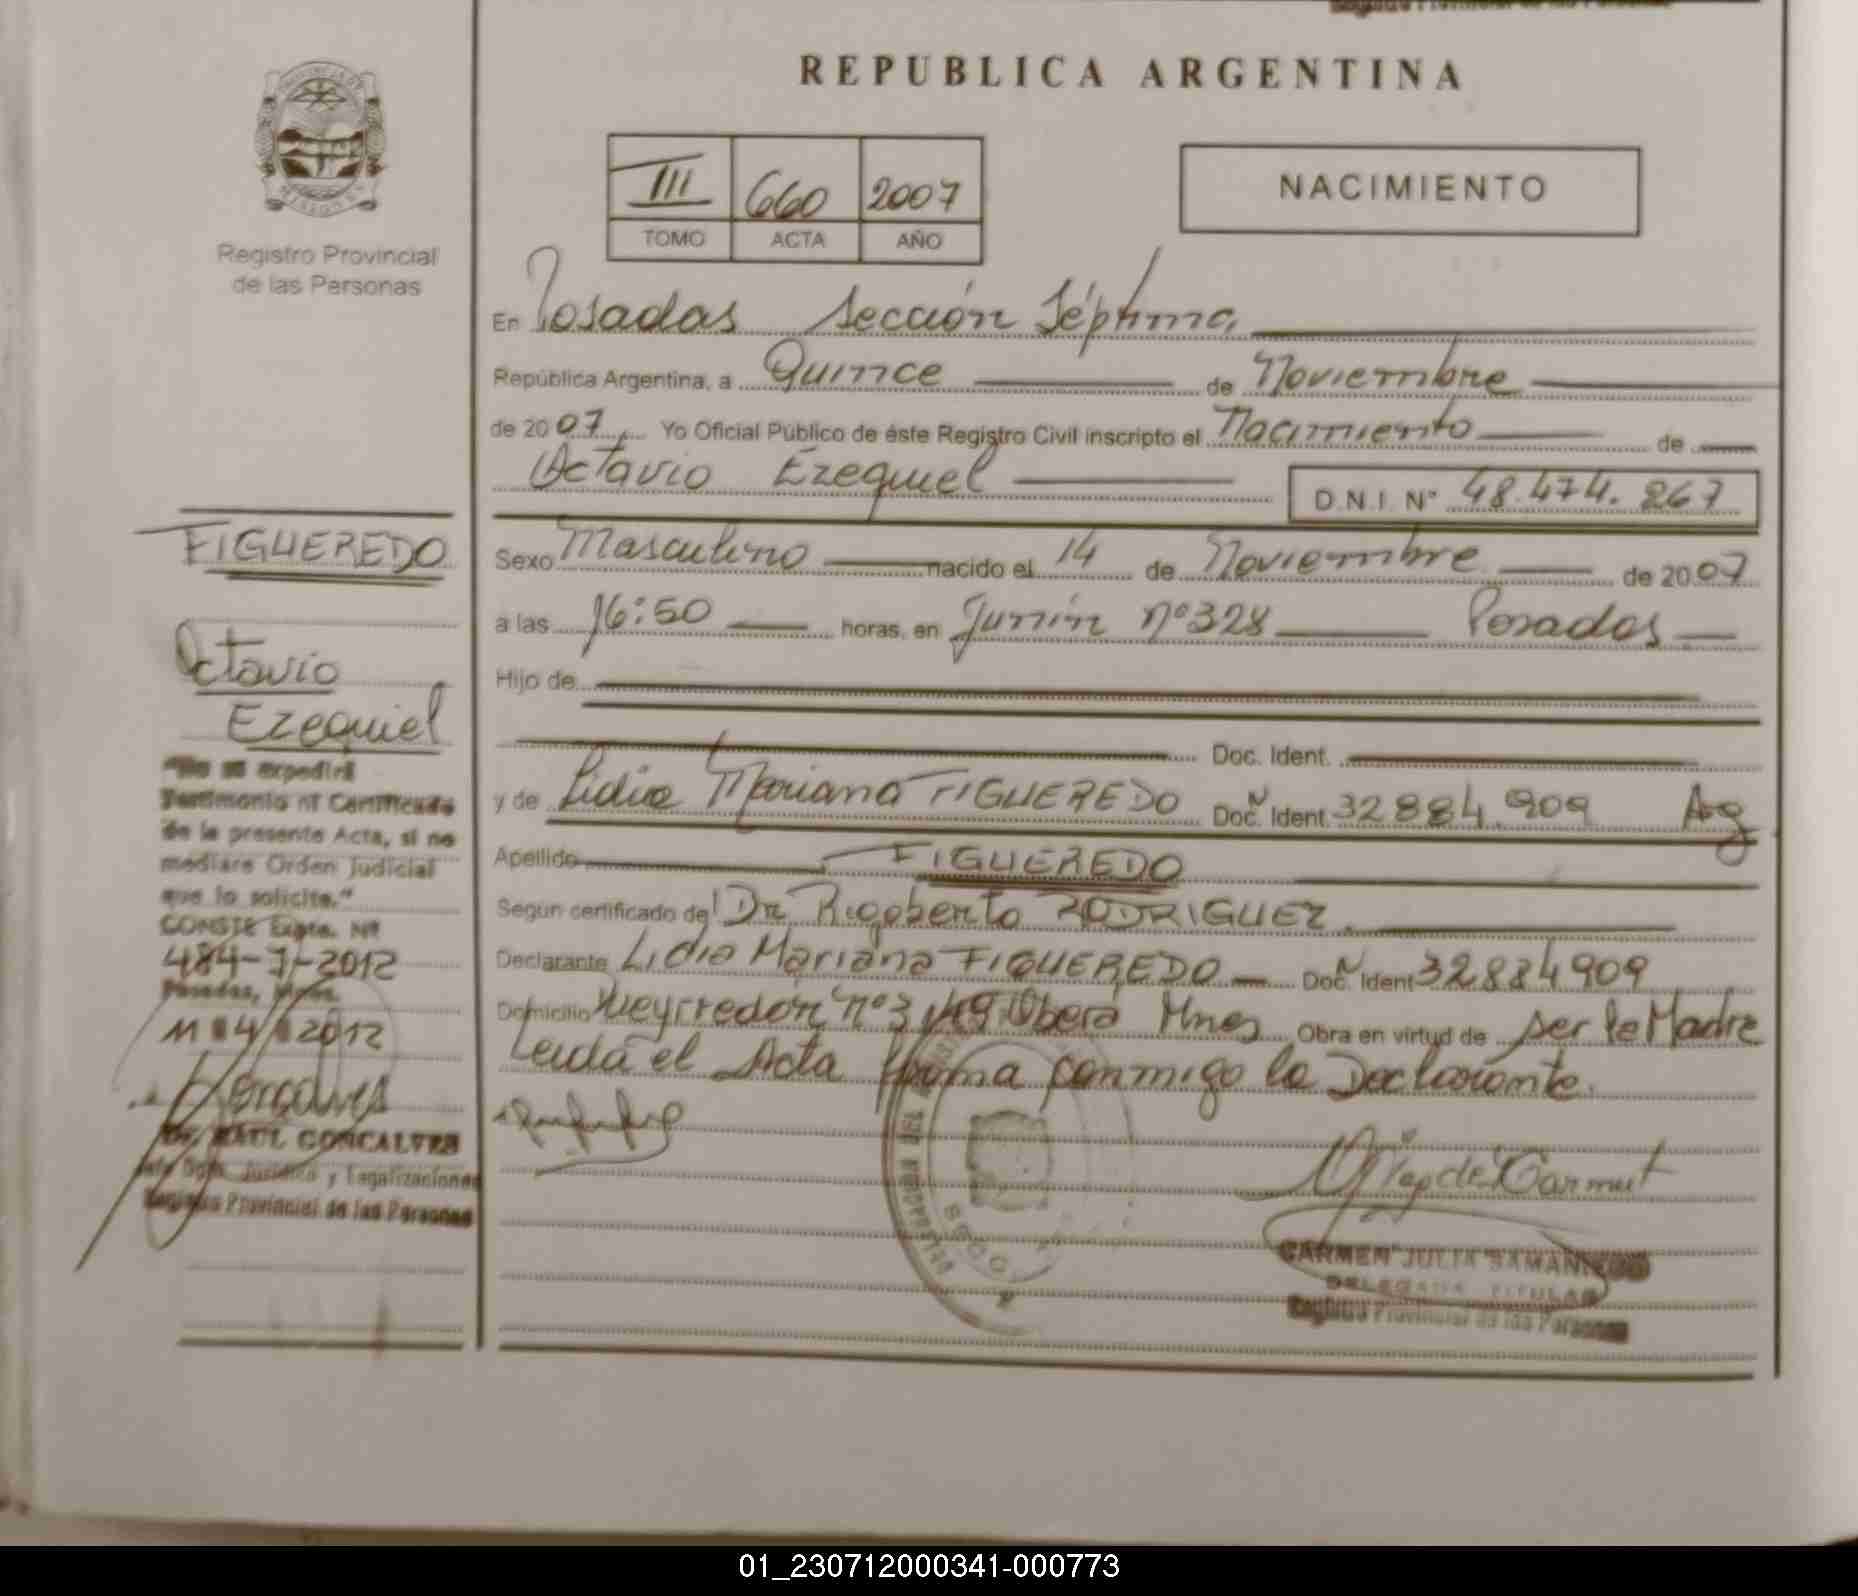 REPUBLICA ARGENTINA
III 660 2007
TOMO ACTA AÑO
NACIMIENTO
Registro Provincial
de las Personas
En Posadas Sección Séptima
República Argentina, a Quince de Noviembre
de 2007 Yo Oficial Público de éste Registro Civil inscripto el Nacimiento de
Octavio Ezequiel D.N.I. N° 48.474.267
Sexo Masculino nacido el 14 de Noviembre de 2007
a las 16:50 horas, en Junín nº 328 Posadas
Hijo de
Doc. Ident.
y de Lidia Mariana FIGUEREDO Doc. Ident. 32884.909
Apellido FIGUEREDO
Según certificado de Dr Rigoberto RODRIGUEZ.
Declarante Lidia Mariana FIGUEREDO Doc. Ident 32884909
Domicilio nº 3 Oberá Mnes Obra en virtud de ser la Madre
Leida el Acta firma conmigo la Declarante.
CARMEN JULIA
DELEGADA TITULAR
Registro Provincial de las Personas
FIGUEREDO
Octavio
Ezequiel
"No se expedirá
Testimonio ni Certificado
de la presente Acta, si no
mediare Orden Judicial
que lo solicite."
CONSTE Expte. Nº
484-J-2012
Posadas, Mnes.
11 4 2012
Dr. RAUL GONCALVES
Jurídico y Legalizaciones
Registro Provincial de las Personas
01_230712000341-000773